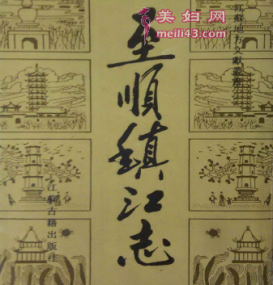 至順鎮江志
江蘇古籍出版社
美妇网
meili43.com